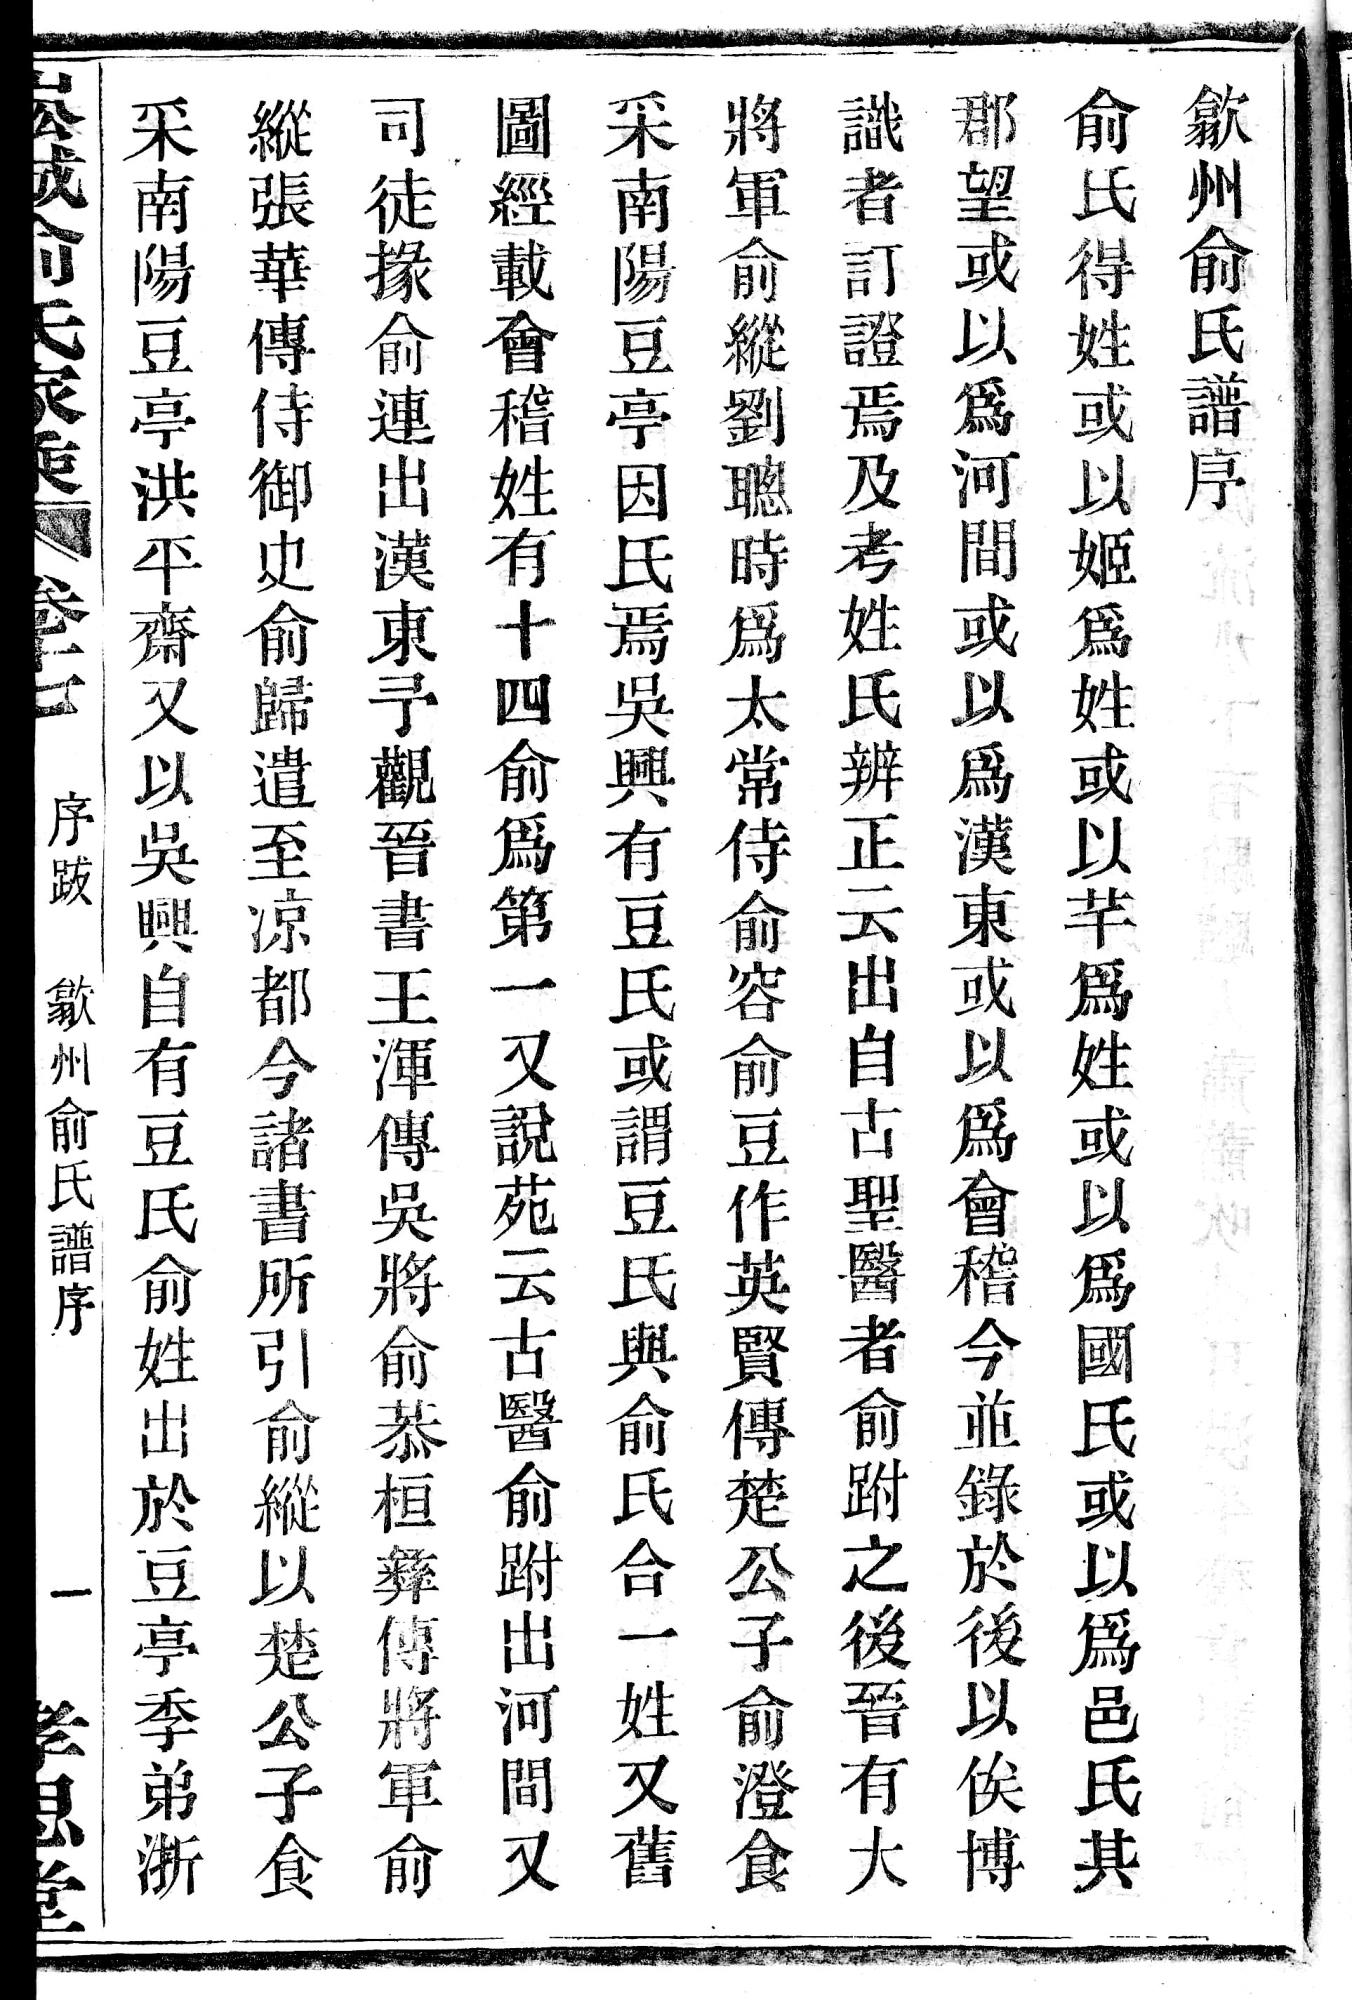 歙州俞氏譜序
俞氏得姓或以姬爲姓或以芊爲姓或以爲國氏或以爲邑氏其
郡望或以爲河間或以爲漢東或以爲會稽今並錄於後以俟博
識者訂證焉及考姓氏辨正云出自古聖醫者俞跗之後晉有大
將軍俞縱劉聰時爲太常侍俞容俞豆作英賢傳楚公子俞澄食
采南陽豆亭因氏焉吳興有豆氏或謂豆氏與俞氏合一姓又舊
圖經載會稽姓有十四俞爲第一又說苑云古醫俞跗出河間又
司徒掾俞連出漢東予觀晉書王渾傳吳將俞恭桓彝傳將軍俞
縱張華傳侍御史俞歸遣至凉都今諸書所引俞縱以楚公子食
采南陽豆亭洪平齋又以吳興自有豆氏俞姓出於豆亭季弟淅
俞氏家乘 卷十七 序跋 歙州俞氏譜序 一 孝思堂